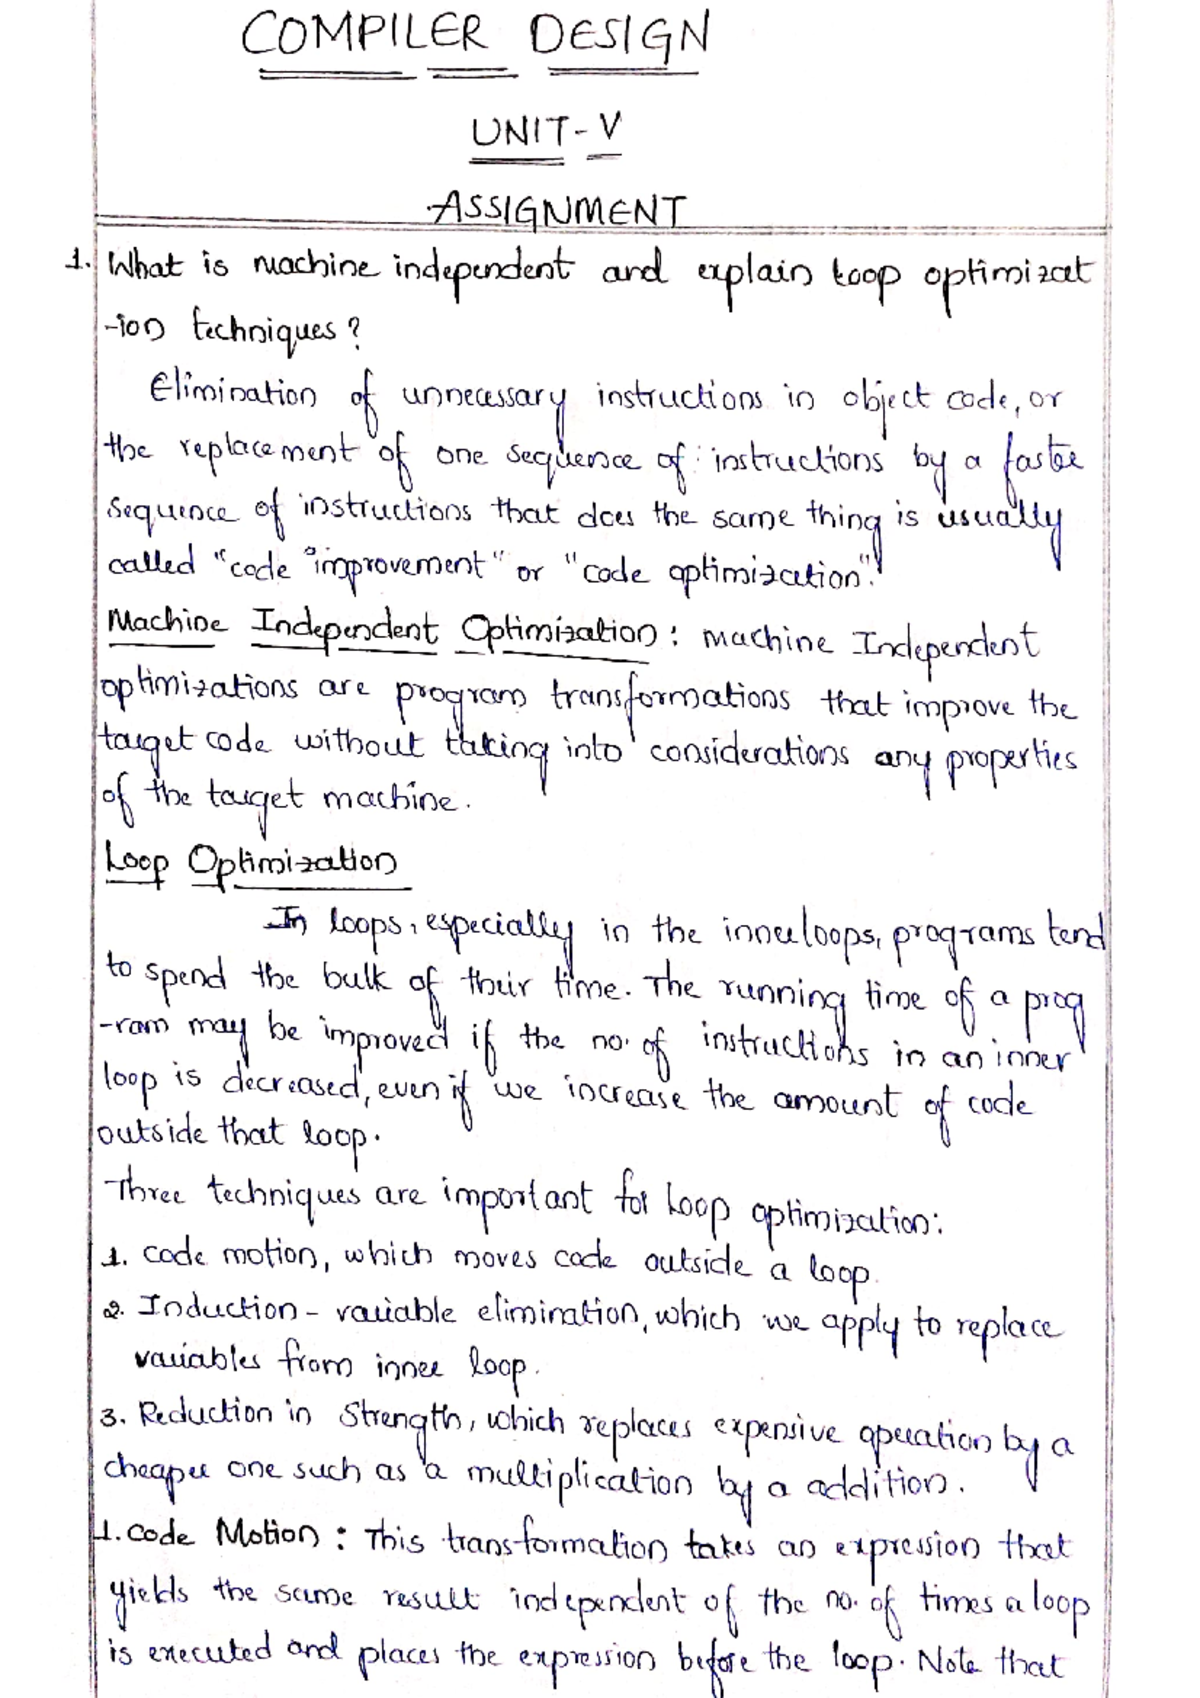 COMPILER DESIGN
UNIT-V
ASSIGNMENT
1. What is machine independent and explain loop optimizat
-ion techniques?
Elimination of unnecessary instructions in object code, or
the replacement of one sequence of instructions by a faster
sequence of instructions that does the same thing is usually
called "code improvement" or "code optimization".
Machine Independent Optimization: machine Independent
optimizations are program transformations that improve the
target code without taking into considerations any properties
of the target machine.
Loop Optimization
In loops, especially in the inner loops, programs tend
to spend the bulk of their time. The running time of a prog
-ram may be improved if the no. of instructions in an inner
loop is decreased, even if we increase the amount of code
outside that loop.
Three techniques are important for Loop optimization:
1. code motion, which moves code outside a loop.
2. Induction - variable elimination, which we apply to replace
variables from inner loop.
3. Reduction in Strength, which replaces expensive operation by a
cheaper one such as a multiplication by a addition.
1. code Motion: This transformation takes an expression that
yields the same result independent of the no. of times a loop
is executed and places the expression before the loop. Note that